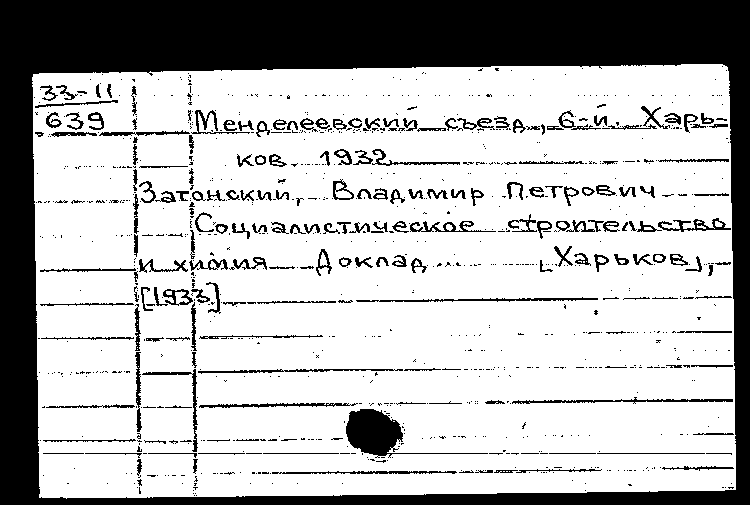 33-11
639
Менделеевский съезд, 6-й. Харь-
ков. 1932
Затонский, Владимир Петрович
Социалистическое строительство
и химия Доклад ... [Харьков],
[1933]